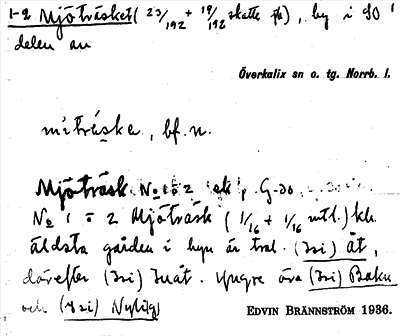 1-2 Mjöträsket (23/192 + 19/192 skatte fr), by i SO
delen av
Överkalix sn o. tg. Norrb. l.
mi̇̀träske, bf. n.
Mjöträsk No 1 = 2
No 1 = 2 Mjöträsk (1/16 + 1/16 mtl.) kh.
äldsta gården i byn är tral. (Isi) ät,
därefter (Isi) Inåt. yngre öva (Isi) Baku
och (Isi) Nylig
EDVIN BRÄNNSTRÖM 1936.